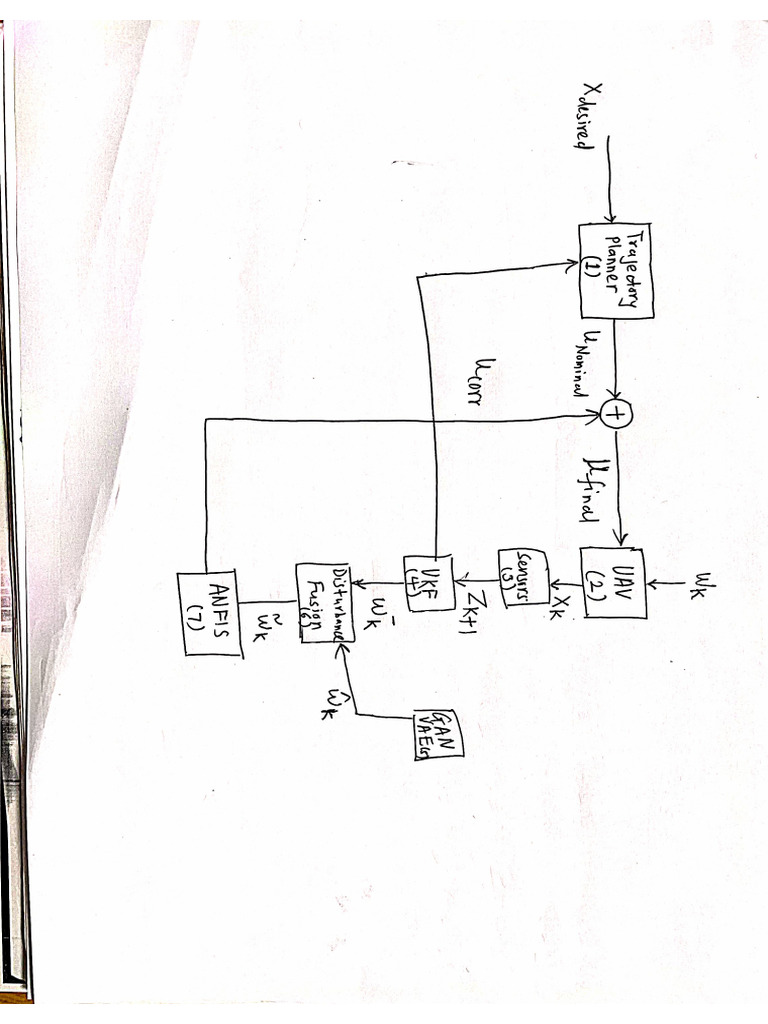 Xdesired
Trajectory
planner
(1)
uNominal
+
μfinal
wk
UAV
(2)
xk
Sensors
(3)
Zk+1
UKF
(4)
w̄k
ucorr
Disturbance
Fusion
(6)
ŵk
GAN
VAE(5)
w̃k
ANFIS
(7)